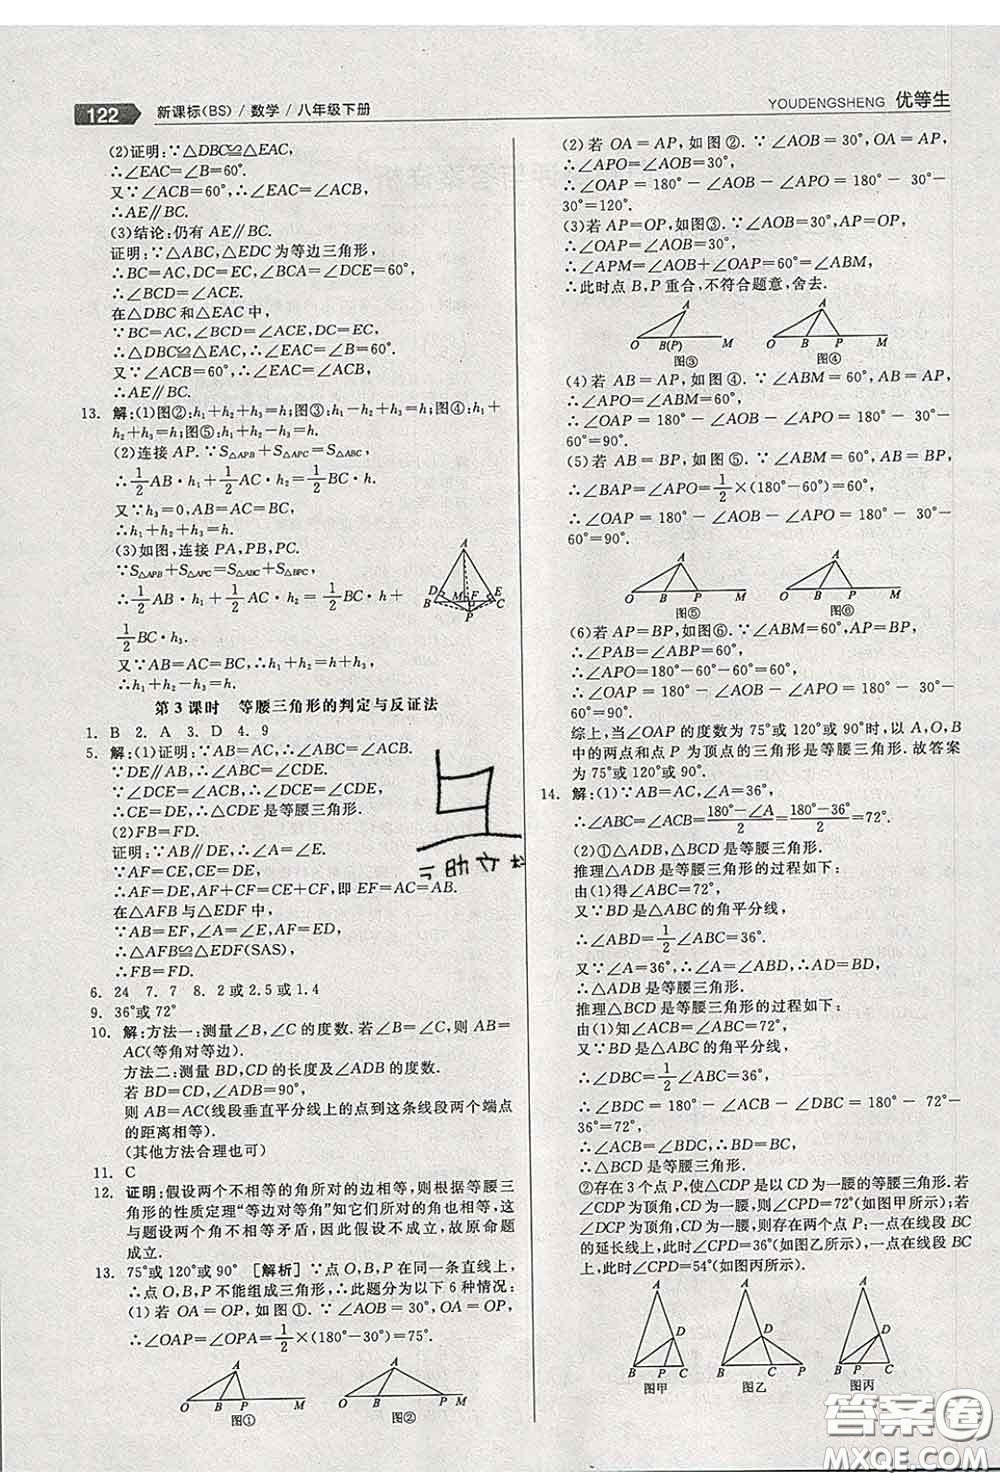 122 新课标(BS)/数学/八年级下册
YOUDENGSHENG 优等生
(2)证明:∵△DBC≌△EAC,
∴∠EAC=∠B=60°.
又∵∠ACB=60°,∴∠EAC=∠ACB,
∴AE∥BC.
(3)结论:仍有 AE∥BC.
证明:∵△ABC,△EDC 为等边三角形,
∴BC=AC,DC=EC,∠BCA=∠DCE=60°,
∴∠BCD=∠ACE.
在△DBC 和△EAC 中,
∵BC=AC,∠BCD=∠ACE,DC=EC,
∴△DBC≌△EAC,∴∠EAC=∠B=60°.
又∵∠ACB=60°,∴∠EAC=∠ACB,
∴AE∥BC.
13. 解:(1)图②:h₁+h₂+h₃=h;图③:h₁-h₂+h₃=h;图④:h₁+
h₂+h₃=h;图⑤:h₁+h₂-h₃=h.
(2)连接 AP.∵S△APB+S△APC=S△ABC,
∴1/2AB·h₁+1/2AC·h₂=1/2BC·h.
又∵h₃=0,AB=AC=BC,
∴h₁+h₂+h₃=h.
(3)如图,连接 PA,PB,PC.
∵S△APB+S△APC=S△ABC+S△BPC,
∴1/2AB·h₁+1/2AC·h₂=1/2BC·h+
1/2BC·h₃.
又∵AB=AC=BC,∴h₁+h₂=h+h₃,
∴h₁+h₂-h₃=h.
A
D M F E
B P C
第3课时 等腰三角形的判定与反证法
1. B 2. A 3. D 4. 9
5. 解:(1)证明:∵AB=AC,∴∠ABC=∠ACB.
∵DE∥AB,∴∠ABC=∠CDE.
∵∠DCE=∠ACB,∴∠DCE=∠CDE,
∴CE=DE,∴△CDE是等腰三角形.
(2)FB=FD.
证明:∵AB∥DE,∴∠A=∠E.
∵AF=CE,CE=DE,∴AF=DE,
∴AF=DE,AF+CF=CE+CF,即EF=AC=AB.
在△AFB与△EDF中,
∵AB=EF,∠A=∠E,AF=DE,
∴△AFB≌△EDF(SAS),
∴FB=FD.
6. 24 7. 7 8. 2或2.5或1.4
9. 36°或72°
10. 解:方法一:测量∠B,∠C的度数.若∠B=∠C,则AB=
AC(等角对等边).
方法二:测量BD,CD的长度及∠ADB的度数.
若 BD=CD,∠ADB=90°,
则 AB=AC(线段垂直平分线上的点到这条线段两个端点
的距离相等).
(其他方法合理也可)
11. C
12. 证明:假设两个不相等的角所对的边相等,则根据等腰三
角形的性质定理“等边对等角”知它们所对的角相等,这
与题设两个角不相等矛盾,因此假设不成立,故原命题
成立.
13. 75°或120°或90° [解析]∵点O,B,P在同一条直线上,
∴点O,B,P不能组成三角形,∴此题分为以下6种情况:
(1)若 OA=OP,如图①.∵∠AOB=30°,
∴∠OAP=∠OPA=1/2×(180°-30°)=75°.
A A
O B P M O B P M
图① 图②
(2)若 OA=AP,如图②.∵∠AOB=30°,
∴∠APO=∠AOB=30°,
∴∠OAP=180°-∠AOB-∠APO=180°-30°-
30°=120°.
(3)若 AP=OP,如图③.∵∠AOB=30°,
∴∠OAP=∠AOB=30°,
∴∠APM=∠AOB+∠OAP=60°=∠ABM,
∴此时点B,P重合,不符合题意,舍去.
A A
O B(P) M O B P M
图③ 图④
(4)若 AB=AP,如图④.∵∠ABM=60°,
∴∠APO=∠ABM=60°,
∴∠OAP=180°-∠AOB-∠APO=180°-30°-
60°=90°.
(5)若 AB=BP,如图⑤.∵∠ABM=60°,
∴∠BAP=∠APO=1/2×(180°-60°)=60°,
∴∠OAP=180°-∠AOB-∠APO=180°-30°-
60°=90°.
A A
O B P M O B P M
图⑤ 图⑥
(6)若 AP=BP,如图⑥.∵∠ABM=60°,
∴∠PAB=∠ABP=60°,
∴∠APO=180°-60°-60°=60°,
∴∠OAP=180°-∠AOB-∠APO=180°-30°-
60°=90°.
综上,当∠OAP的度数为75°或120°或90°时,以A,O,B
中的两点和点P为顶点的三角形是等腰三角形.故答案
为75°或120°或90°.
14. 解:(1)∵AB=AC,∠A=36°,
∴∠ABC=∠ACB=(180°-∠A)/2=(180°-36°)/2=72°.
(2)①△ADB,△BCD是等腰三角形.
推理△ADB是等腰三角形的过程如下:
由(1)得∠ABC=72°,
又∵BD是△ABC的角平分线,
∴∠ABD=1/2∠ABC=36°.
又∵∠A=36°,∴∠A=∠ABD,∴AD=BD,
∴△ADB是等腰三角形.
推理△BCD是等腰三角形的过程如下:
由(1)知∠ABC=∠ACB=72°,
又∵BD是△ABC的角平分线,
∴∠DBC=1/2∠ABC=36°,
∴∠BDC=180°-∠ACB-∠DBC=180°-72°-
36°=72°,
∴∠ACB=∠BDC,∴BD=BC,
∴△BCD是等腰三角形.
②存在3个点P,使△CDP是以CD为一腰的等腰三角形;若
△CDP以CD,CP为一腰,则∠CPD=72°(如图甲所示);若
△DCP为顶角,CD为一腰,则存在两个点P:一点在线段BC
的延长线上,此时∠CPD=36°(如图乙所示),一点在线段BC
上,此时∠CPD=54°(如图丙所示).
A A A
D D D
B P C B C P B P C
图甲 图乙 图丙
答案圈
MXQE.COM